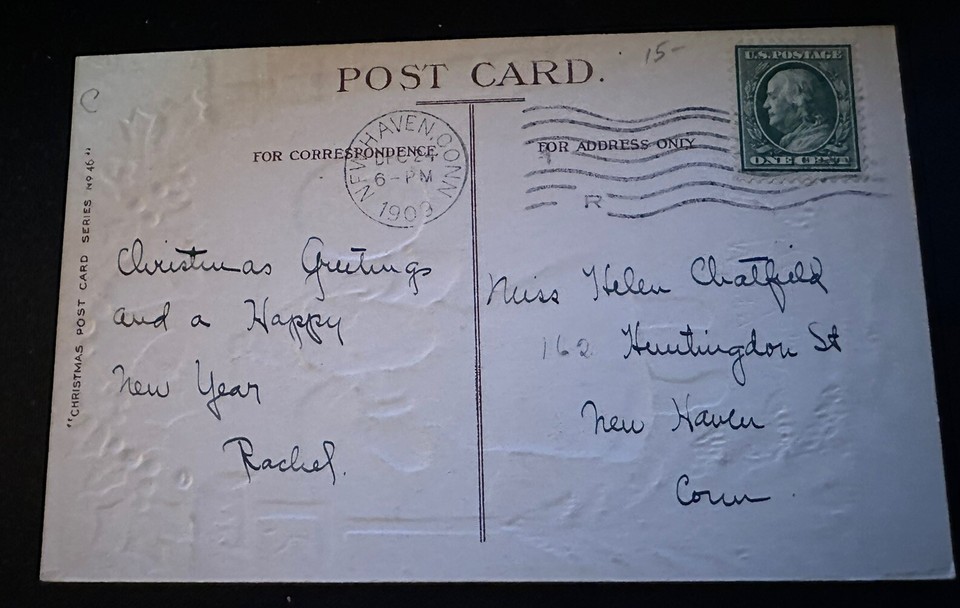 15-
POST CARD.
U.S. POSTAGE
ONE CENT
C
FOR CORRESPONDENCE
FOR ADDRESS ONLY
NEW HAVEN, CONN.
DEC 24
6-PM
1909
R
"CHRISTMAS POST CARD SERIES No 46"
Christmas Greetings
and a Happy
New Year
Rachel.
Miss Helen Chatfield
162 Huntingdon St
New Haven
Conn.